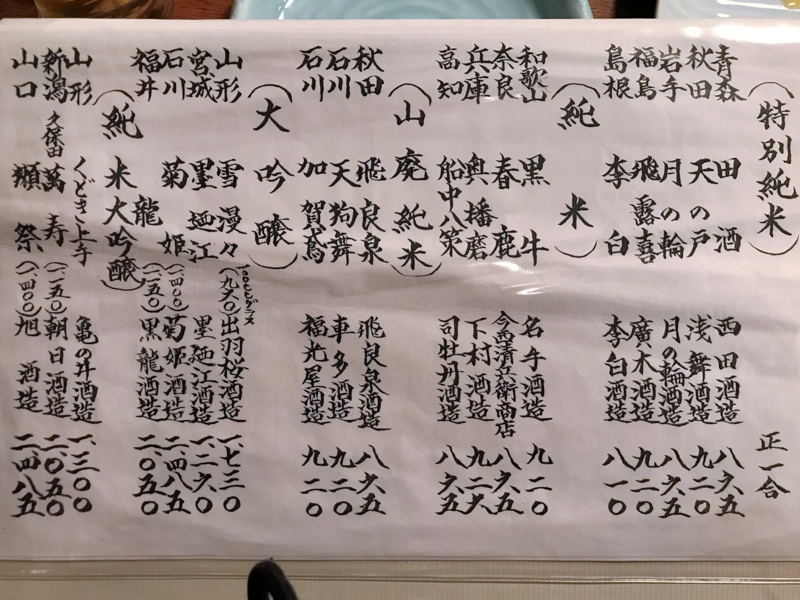 (特別純米) 正一合
青森 田酒 西田酒造 八六五
秋田 天の戸 浅舞酒造 八六五
岩手 月の輪 月の輪酒造 九二〇
福島 飛露喜 廣木酒造 九二〇
島根 李白 李白酒造 八一〇
(純米)
和歌山 黒牛 名手酒造 九二〇
奈良 春鹿 今西清兵衛商店 八六五
兵庫 奥播磨 下村酒造 九二〇
高知 船中八策 司牡丹酒造 八六五
(山廃純米)
秋田 飛良泉 飛良泉酒造 八六五
石川 天狗舞 車多酒造 九二〇
石川 加賀鳶 福光屋酒造 九二〇
(大吟醸)
山形 雪漫々 (九六〇) 出羽桜酒造 一、七三〇
宮城 墨廼江 墨廼江酒造 一、二六〇
石川 菊姫 (一、四〇〇) 菊姫酒造 二、四八五
福井 龍 (一、一五〇) 黒龍酒造 二、〇五〇
(純米大吟醸)
山形 くどき上手 亀の井酒造 一、三〇〇
新潟 久保田 萬寿 (一、一五〇) 朝日酒造 二、〇五〇
山口 獺祭 (一、四〇〇) 旭酒造 二、四八五